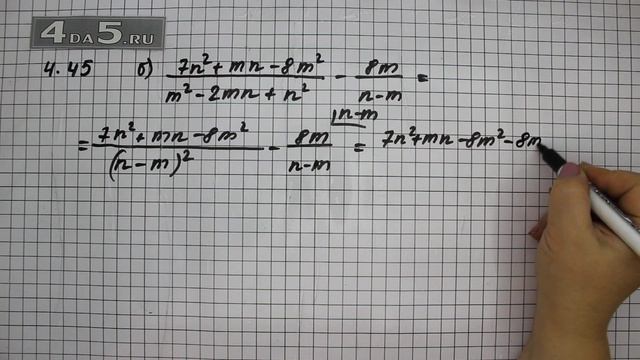 4DA5.RU
4.45 б) (7n²+mn-8m²)/(m²-2mn+n²) - 8m/(n-m) =
= (7n²+mn-8m²)/(n-m)² - 8m/(n-m) |n-m = 7n²+mn-8m²-8m